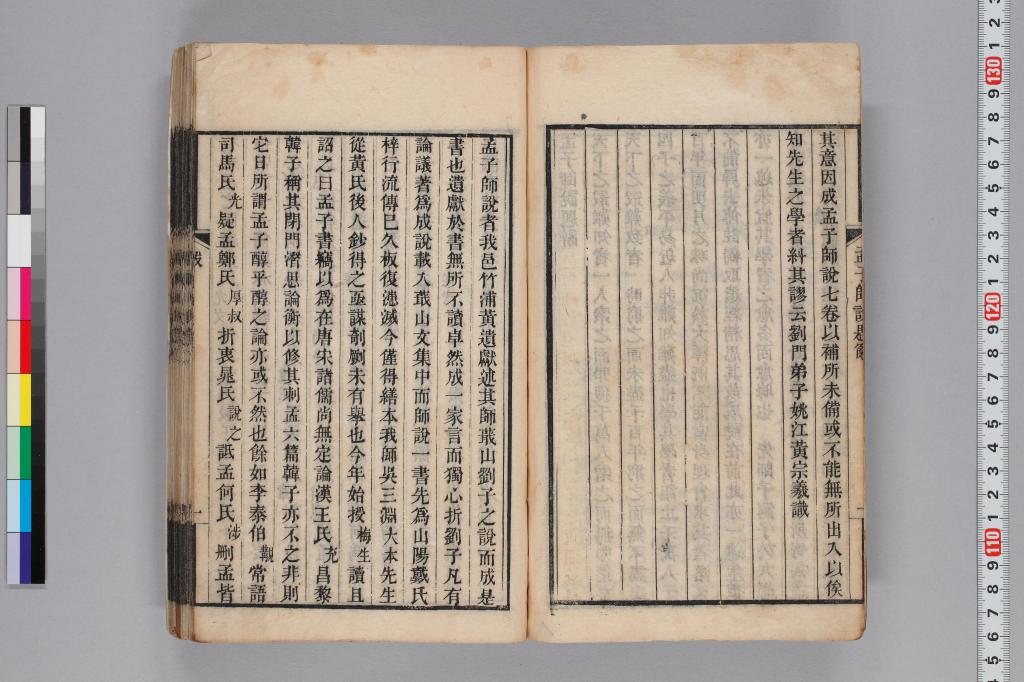 其意因成孟子師說七卷以補所未備或不能無所出入以俟
知先生之學者糾其謬云劉門弟子姚江黃宗羲識
孟子師說題辭
孟子師說者我邑竹浦黃遺獻述其師蕺山劉子之說而成是
書也遺獻於書無所不讀卓然成一家言而獨心折劉子凡有
論議著爲成說載入蕺山文集中而師說一書先爲山陽戴氏
梓行流傳已久板復漶滅今僅得繕本我師吳三淵大本先生
從黃氏後人鈔得之亟謀剞劂未有舉也今年始授梅生讀且
詔之曰孟子書竊以爲在唐宋諸儒尚無定論漢王氏充昌黎
韓子稱其閉門潛思論衡以修其刺孟六篇韓子亦不之非則
它日所謂孟子醇乎醇之論亦或不然也餘如李泰伯覯常語
司馬氏光疑孟鄭氏厚叔折衷晁氏說之詆孟何氏涉刪孟皆
跋
一
130
120
110